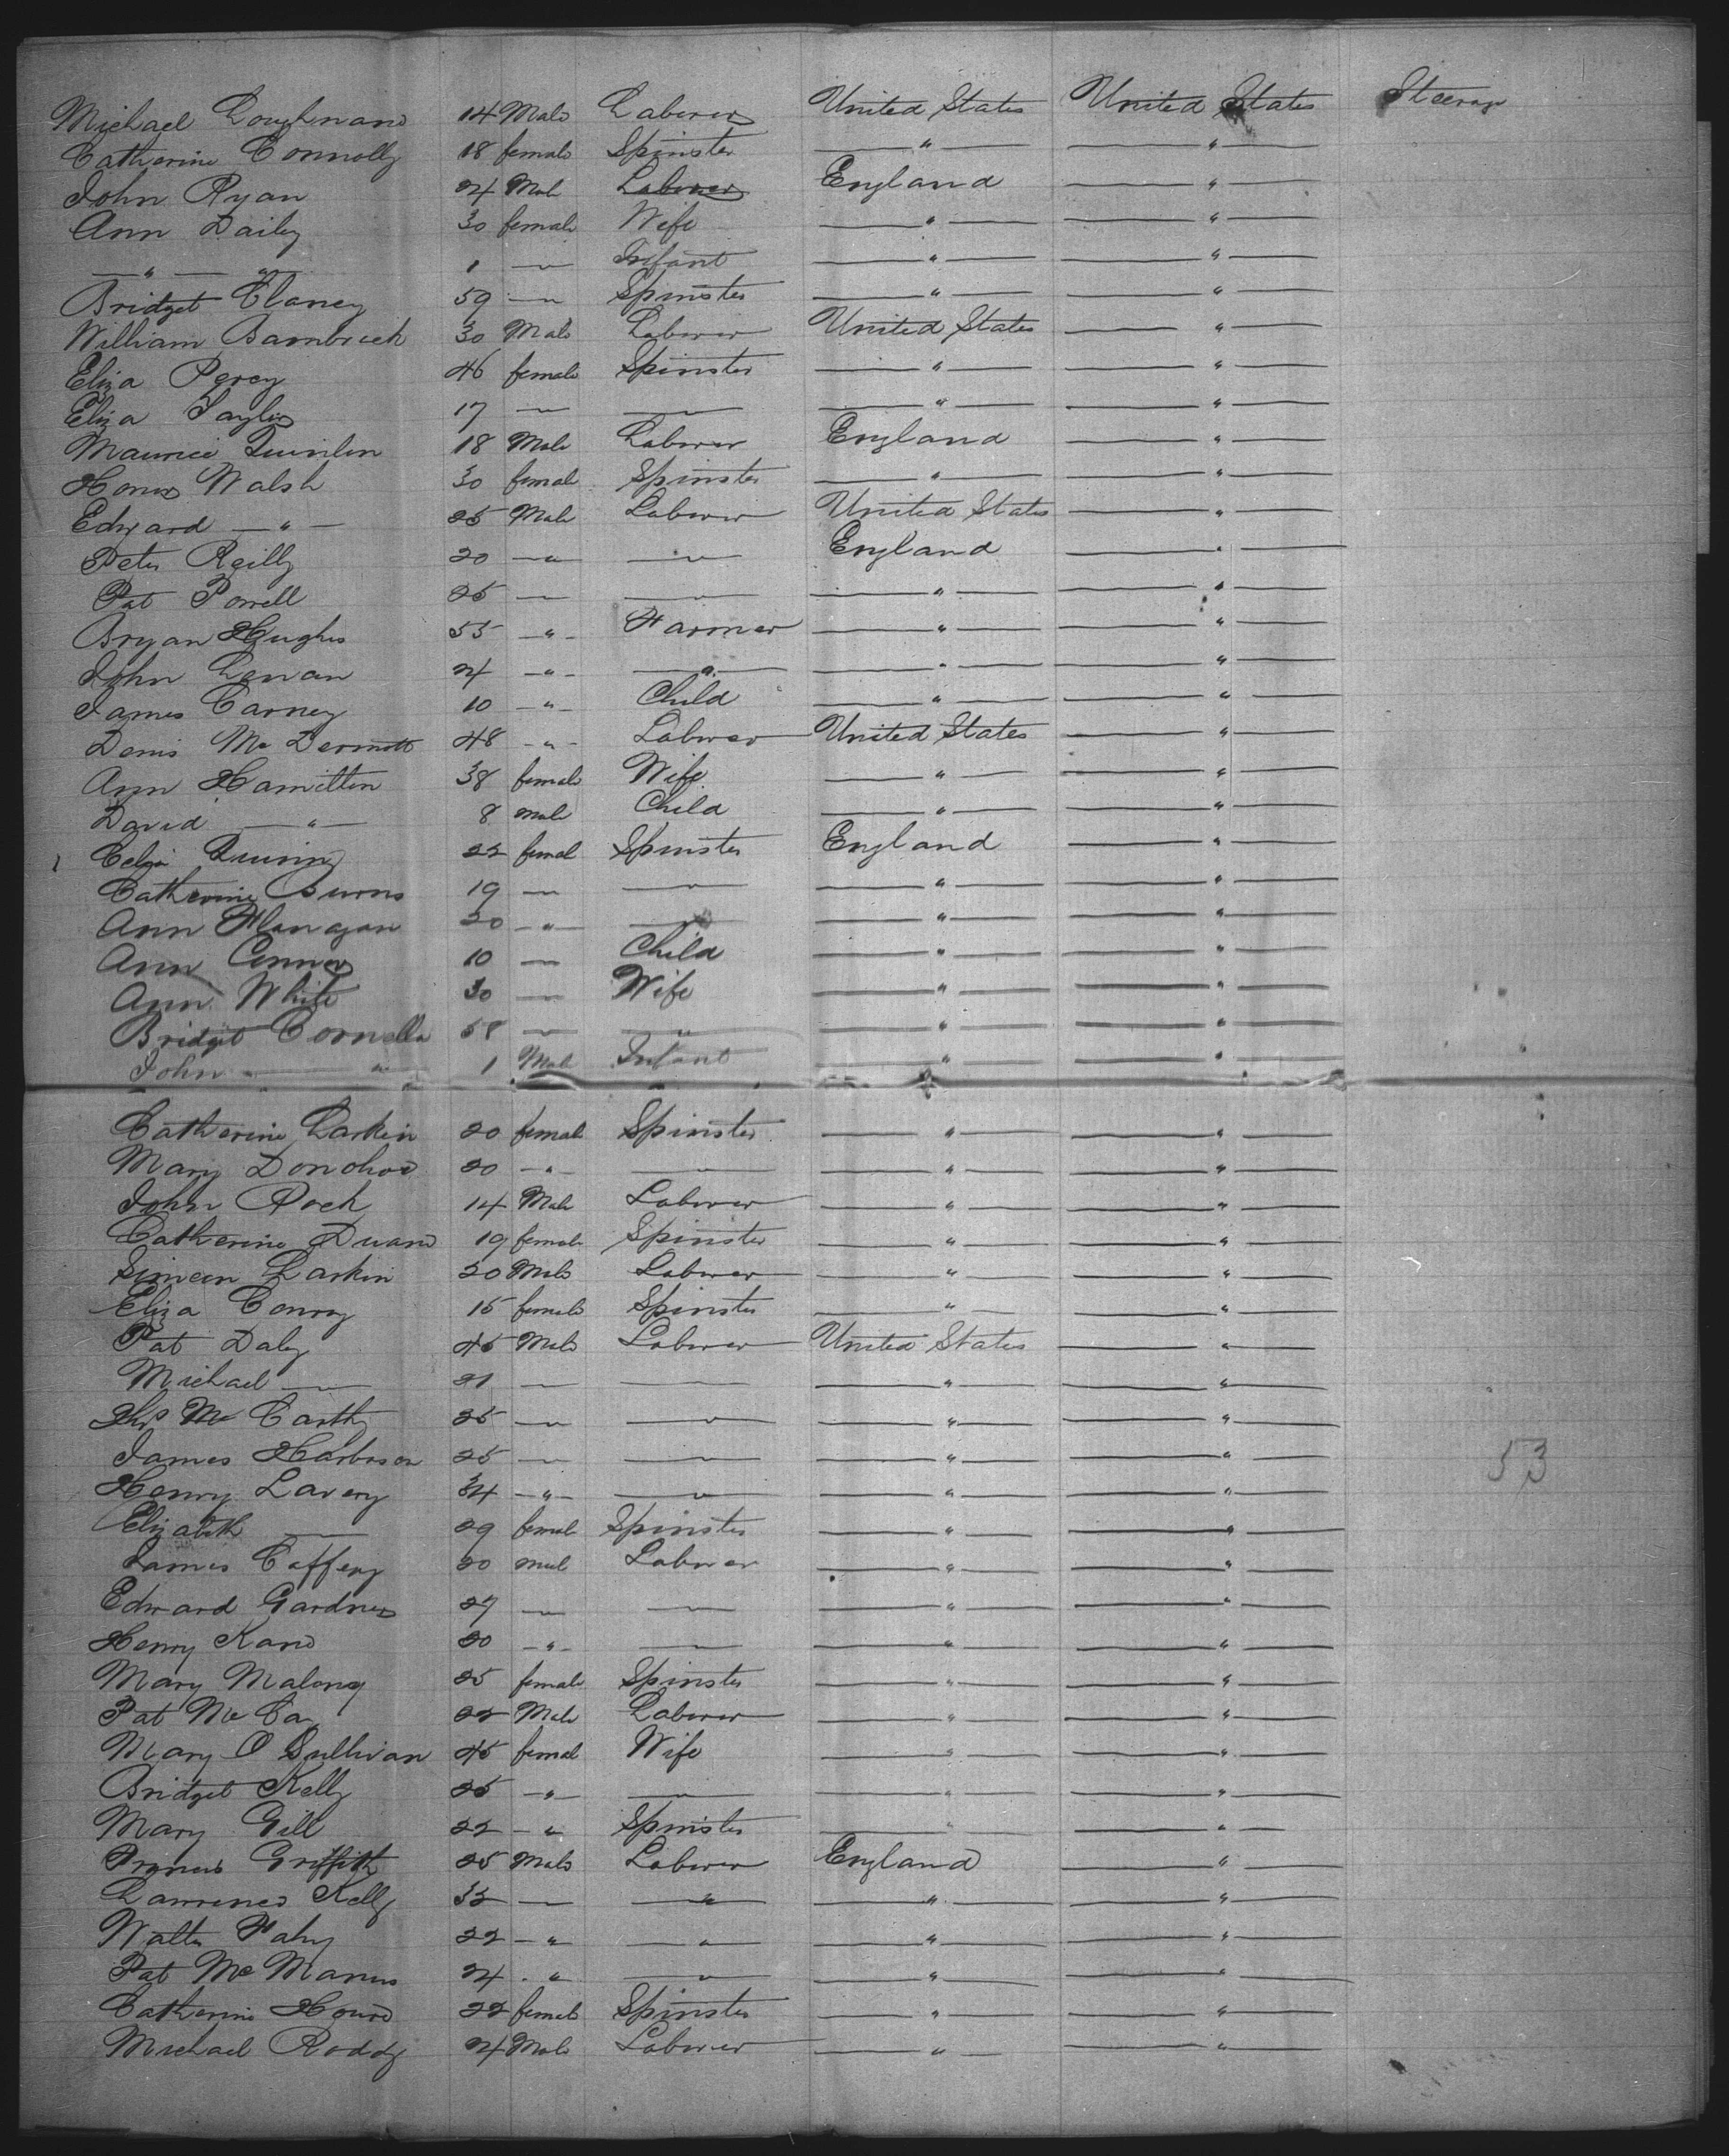 Michael Loughnane 14 Male Laborer United States United States Steerage
Catherine Connolly 18 female Spinster — " — — " —
John Ryan 24 Male Laborer England — " —
Ann Daily 30 female Wife — " — — " —
— " — " — 1 — " Infant — " — — " —
Bridget Clancy 59 — " Spinster — " — — " —
William Bambrick 30 Male Laborer United States — " —
Eliza Percy 46 female Spinster — " — — " —
Eliza Taylor 17 — " — — " — — " — — " —
Maurice Quinlan 18 Male Laborer England — " —
Honor Walsh 30 female Spinster — " — — " —
Edward — " — 25 Male Laborer United States — " —
Peter Reilly 20 — " — — " — England — " —
Pat Powell 25 — " — — " — — " — — " —
Bryan Hughes 55 — " — Farmer — " — — " —
John Lenan 24 — " — — " — — " — — " —
James Carney 10 — " — Child — " — — " —
Denis McDermott 48 — " — Laborer United States — " —
Ann Hamilton 38 female Wife — " — — " —
David — " — 8 male Child — " — — " —
22 femal Spinster England — " —
Catherine Burns 19 — " — — " — — " — — " —
Ann Flanagan 20 — " — — " — — " — — " —
Ann Connor 10 — " — Child — " — — " —
Ann White 30 — " — Wife — " — — " —
Bridget 58 — " — — " — — " — — " —
John — " — 1 Male Infant — " — — " —
Catherine Larkin 20 female Spinster — " — — " —
Mary Donohoe 20 — " — — " — — " — — " —
John Rock 14 Male Laborer — " — — " —
Catherine Duane 19 female Spinster — " — — " —
Simeon Larkin 20 Male Laborer — " — — " —
Eliza Conroy 15 female Spinster — " — — " —
Pat Daly 45 Male Laborer United States — " —
Michael — " — 21 — " — — " — — " — — " —
Thos McCarthy 25 — " — — " — — " — — " —
James Harbison 25 — " — — " — — " — — " — 53
Henry Lavery 34 — " — — " — — " — — " —
Elizabeth — " — 29 female Spinster — " — — " —
James Caffery 20 male Laborer — " — — " —
Edward Gardner 27 — " — — " — — " — — " —
Henry Kane 20 — " — — " — — " — — " —
Mary Malony 25 female Spinster — " — — " —
Pat 22 Male Laborer — " — — " —
Mary O Sullivan 45 female Wife — " — — " —
Bridget Kelly 25 — " — — " — — " — — " —
Mary Gill 22 — " Spinster — " — — " —
Francis Griffith 25 Male Laborer England — " —
Lawrence Kelly 33 — " — — " — — " — — " —
Walter Fahy 22 — " — " — — " — — " —
Pat McManus 24 — " — " — — " — — " —
Catherine 22 female Spinster — " — — " —
Michael Roddy 24 Male Laborer — " — — " —